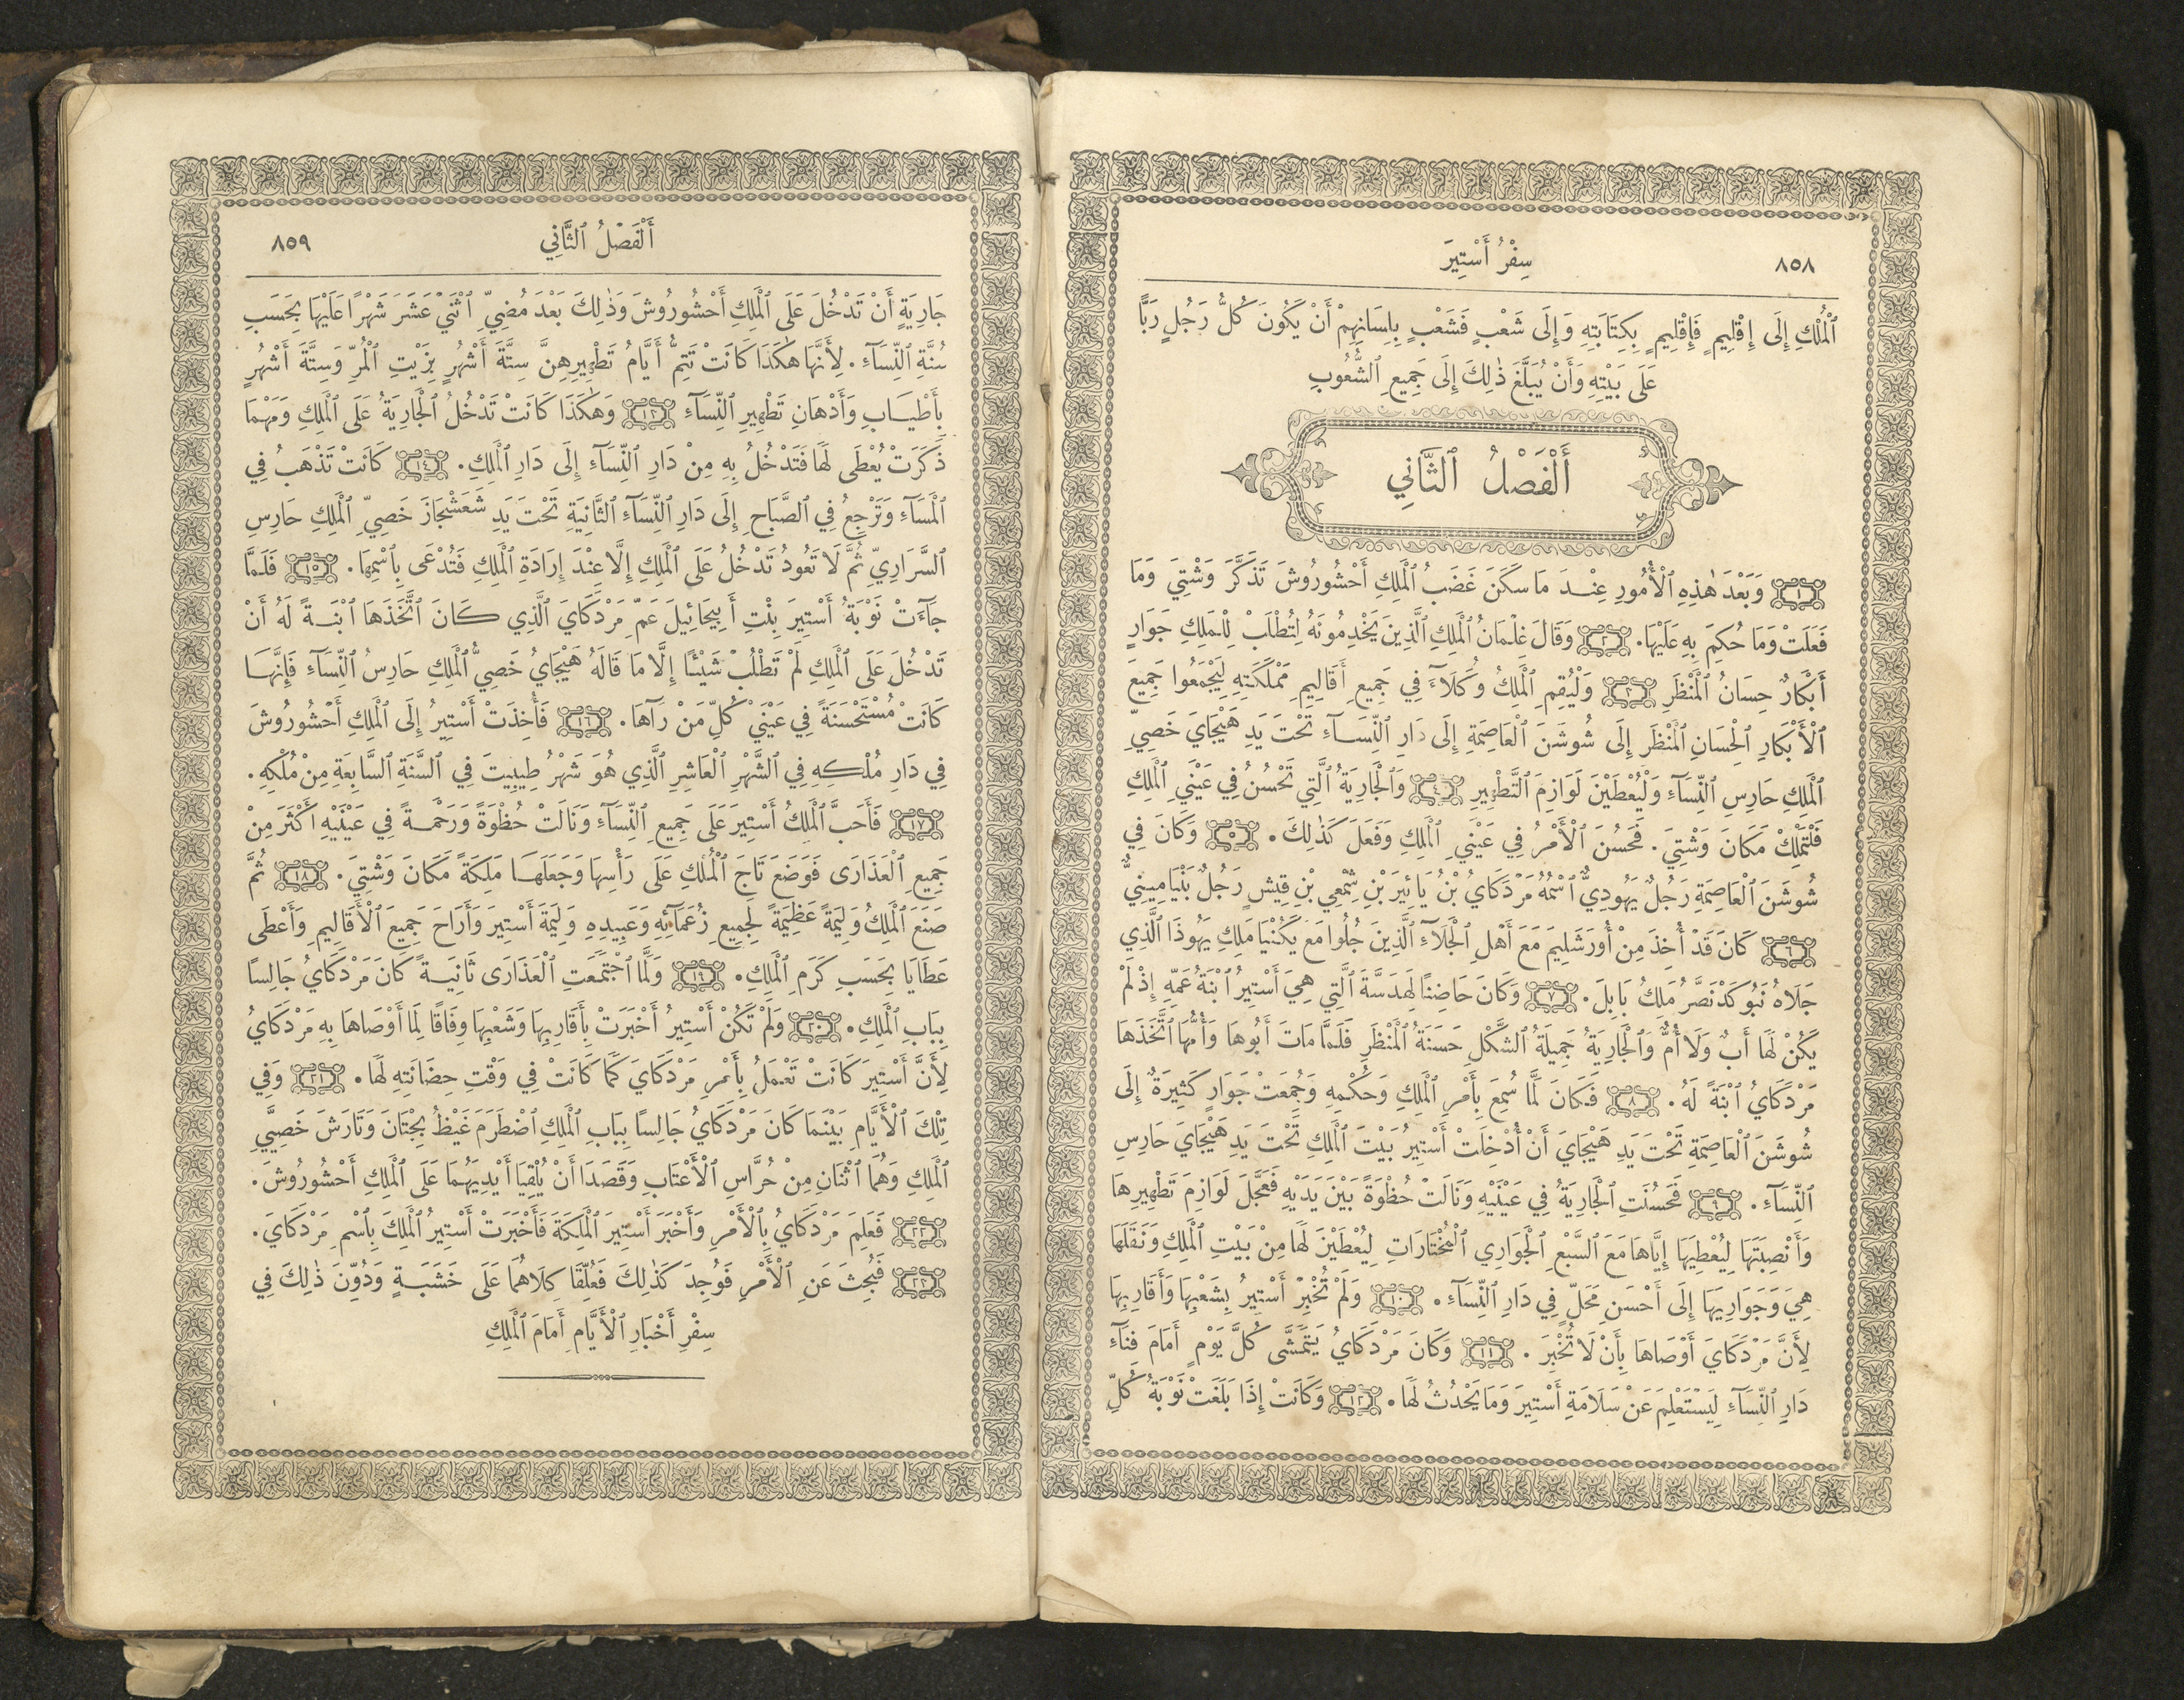 ٨٥٨ سِفْرُ أَسْتِيرَ
ٱلْمُلْكِ إِلَى إِقْلِيمٍ فَإِقْلِيمٍ بِكِتَابَتِهِ وَإِلَى شَعْبٍ فَشَعْبٍ بِلِسَانِهِمْ أَنْ يَكُونَ كُلُّ رَجُلٍ رَبًّا
عَلَى بَيْتِهِ وَأَنْ يُبَلَّغَ ذٰلِكَ إِلَى جَمِيعِ ٱلشُّعُوبِ
أَلْفَصْلُ ٱلثَّانِي
١ وَبَعْدَ هٰذِهِ ٱلْأُمُورِ عِنْدَ مَا سَكَنَ غَضَبُ ٱلْمَلِكِ أَحْشُورُوشَ تَذَكَّرَ وَشْتِيَ وَمَا
فَعَلَتْ وَمَا حُكِمَ بِهِ عَلَيْهَا. ٢ وَقَالَ غِلْمَانُ ٱلْمَلِكِ ٱلَّذِينَ يَخْدِمُونَهُ لِتُطْلَبْ لِلْمَلِكِ جَوَارٍ
أَبْكَارٌ حِسَانُ ٱلْمَنْظَرِ ٣ وَلْيُقِمِ ٱلْمَلِكُ وُكَلَاءَ فِي جَمِيعِ أَقَالِيمِ مَمْلَكَتِهِ لِيَجْمَعُوا جَمِيعَ
ٱلْأَبْكَارِ ٱلْحِسَانِ ٱلْمَنْظَرِ إِلَى شُوشَنَ ٱلْعَاصِمَةِ إِلَى دَارِ ٱلنِّسَاءِ تَحْتَ يَدِ هَيْجَايَ خَصِيِّ
ٱلْمَلِكِ حَارِسِ ٱلنِّسَاءِ وَلْيُعْطَيْنَ لَوَازِمَ ٱلتَّطْهِيرِ ٤ وَٱلْجَارِيَةُ ٱلَّتِي تَحْسُنُ فِي عَيْنَيِ ٱلْمَلِكِ
فَلْتَمْلِكْ مَكَانَ وَشْتِيَ. فَحَسُنَ ٱلْأَمْرُ فِي عَيْنَيِ ٱلْمَلِكِ وَفَعَلَ كَذٰلِكَ. ٥ وَكَانَ فِي
شُوشَنَ ٱلْعَاصِمَةِ رَجُلٌ يَهُودِيٌّ ٱسْمُهُ مَرْدَكَايُ بْنُ يَائِيرَ بْنِ شِمْعِي بْنِ قِيشٍ رَجُلٌ بَنْيَامِينِيٌّ
٦ كَانَ قَدْ أُخِذَ مِنْ أُورَشَلِيمَ مَعَ أَهْلِ ٱلْجَلَاءِ ٱلَّذِينَ جُلُوا مَعَ يَكُنْيَا مَلِكِ يَهُوذَا ٱلَّذِي
جَلَاهُ نَبُوكَدْنَصَّرُ مَلِكُ بَابِلَ. ٧ وَكَانَ حَاضِنًا لِهَدَسَّةَ ٱلَّتِي هِيَ أَسْتِيرُ ٱبْنَةُ عَمِّهِ إِذْ لَمْ
يَكُنْ لَهَا أَبٌ وَلَا أُمٌّ وَٱلْجَارِيَةُ جَمِيلَةُ ٱلشَّكْلِ حَسَنَةُ ٱلْمَنْظَرِ فَلَمَّا مَاتَ أَبُوهَا وَأُمُّهَا ٱتَّخَذَهَا
مَرْدَكَايُ ٱبْنَةً لَهُ. ٨ فَكَانَ لَمَّا سُمِعَ بِأَمْرِ ٱلْمَلِكِ وَحُكْمِهِ وَجُمِعَتْ جَوَارٍ كَثِيرَةٌ إِلَى
شُوشَنَ ٱلْعَاصِمَةِ تَحْتَ يَدِ هَيْجَايَ أَنْ أُدْخِلَتْ أَسْتِيرُ بَيْتَ ٱلْمَلِكِ تَحْتَ يَدِ هَيْجَايَ حَارِسِ
ٱلنِّسَاءِ. ٩ فَحَسُنَتِ ٱلْجَارِيَةُ فِي عَيْنَيْهِ وَنَالَتْ حُظْوَةً بَيْنَ يَدَيْهِ فَعَجَّلَ لَوَازِمَ تَطْهِيرِهَا
وَأَنْصِبَتَهَا لِيُعْطِيَهَا إِيَّاهَا مَعَ ٱلسَّبْعِ ٱلْجَوَارِي ٱلْمُخْتَارَاتِ لِيُعْطَيْنَ لَهَا مِنْ بَيْتِ ٱلْمَلِكِ وَنَقَلَهَا
هِيَ وَجَوَارِيَهَا إِلَى أَحْسَنِ مَحَلٍّ فِي دَارِ ٱلنِّسَاءِ. ١٠ وَلَمْ تُخْبِرْ أَسْتِيرُ بِشَعْبِهَا وَأَقَارِبِهَا
لِأَنَّ مَرْدَكَايَ أَوْصَاهَا بِأَنْ لَا تُخْبِرَ. ١١ وَكَانَ مَرْدَكَايُ يَتَمَشَّى كُلَّ يَوْمٍ أَمَامَ فِنَاءِ
دَارِ ٱلنِّسَاءِ لِيَسْتَعْلِمَ عَنْ سَلَامَةِ أَسْتِيرَ وَمَا يَحْدُثُ لَهَا. ١٢ وَكَانَتْ إِذَا بَلَغَتْ نَوْبَةُ كُلِّ
أَلْفَصْلُ ٱلثَّانِي ٨٥٩
جَارِيَةٍ أَنْ تَدْخُلَ عَلَى ٱلْمَلِكِ أَحْشُورُوشَ وَذٰلِكَ بَعْدَ مُضِيِّ ٱثْنَيْ عَشَرَ شَهْرًا عَلَيْهَا بِحَسَبِ
سُنَّةِ ٱلنِّسَاءِ. لِأَنَّهَا هٰكَذَا كَانَتْ تَتِمُّ أَيَّامُ تَطْهِيرِهِنَّ سِتَّةَ أَشْهُرٍ بِزَيْتِ ٱلْمُرِّ وَسِتَّةَ أَشْهُرٍ
بِأَطْيَابِ وَأَدْهَانِ تَطْهِيرِ ٱلنِّسَاءِ ١٣ وَهٰكَذَا كَانَتْ تَدْخُلُ ٱلْجَارِيَةُ عَلَى ٱلْمَلِكِ وَمَهْمَا
ذَكَرَتْ يُعْطَى لَهَا فَتَدْخُلُ بِهِ مِنْ دَارِ ٱلنِّسَاءِ إِلَى دَارِ ٱلْمَلِكِ. ١٤ كَانَتْ تَذْهَبُ فِي
ٱلْمَسَاءِ وَتَرْجِعُ فِي ٱلصَّبَاحِ إِلَى دَارِ ٱلنِّسَاءِ ٱلثَّانِيَةِ تَحْتَ يَدِ شَعَشْجَازَ خَصِيِّ ٱلْمَلِكِ حَارِسِ
ٱلسَّرَارِيِّ ثُمَّ لَا تَعُودُ تَدْخُلُ عَلَى ٱلْمَلِكِ إِلَّا عِنْدَ إِرَادَةِ ٱلْمَلِكِ فَتُدْعَى بِٱسْمِهَا. ١٥ فَلَمَّا
جَاءَتْ نَوْبَةُ أَسْتِيرَ بِنْتِ أَبِيحَائِيلَ عَمِّ مَرْدَكَايَ ٱلَّذِي كَانَ ٱتَّخَذَهَا ٱبْنَةً لَهُ أَنْ
تَدْخُلَ عَلَى ٱلْمَلِكِ لَمْ تَطْلُبْ شَيْئًا إِلَّا مَا قَالَهُ هَيْجَايُ خَصِيُّ ٱلْمَلِكِ حَارِسُ ٱلنِّسَاءِ فَإِنَّهَا
كَانَتْ مُسْتَحْسَنَةً فِي عَيْنَيْ كُلِّ مَنْ رَآهَا. ١٦ فَأُخِذَتْ أَسْتِيرُ إِلَى ٱلْمَلِكِ أَحْشُورُوشَ
فِي دَارِ مُلْكِهِ فِي ٱلشَّهْرِ ٱلْعَاشِرِ ٱلَّذِي هُوَ شَهْرُ طِيبِيتَ فِي ٱلسَّنَةِ ٱلسَّابِعَةِ مِنْ مُلْكِهِ.
١٧ فَأَحَبَّ ٱلْمَلِكُ أَسْتِيرَ عَلَى جَمِيعِ ٱلنِّسَاءِ وَنَالَتْ حُظْوَةً وَرَحْمَةً فِي عَيْنَيْهِ أَكْثَرَ مِنْ
جَمِيعِ ٱلْعَذَارَى فَوَضَعَ تَاجَ ٱلْمُلْكِ عَلَى رَأْسِهَا وَجَعَلَهَا مَلِكَةً مَكَانَ وَشْتِيَ. ١٨ ثُمَّ
صَنَعَ ٱلْمَلِكُ وَلِيمَةً عَظِيمَةً لِجَمِيعِ زُعَمَائِهِ وَعَبِيدِهِ وَلِيمَةَ أَسْتِيرَ وَأَرَاحَ جَمِيعَ ٱلْأَقَالِيمِ وَأَعْطَى
عَطَايَا بِحَسَبِ كَرَمِ ٱلْمَلِكِ. ١٩ وَلَمَّا ٱجْتَمَعَتِ ٱلْعَذَارَى ثَانِيَةً كَانَ مَرْدَكَايُ جَالِسًا
بِبَابِ ٱلْمَلِكِ. ٢٠ وَلَمْ تَكُنْ أَسْتِيرُ أَخْبَرَتْ بِأَقَارِبِهَا وَشَعْبِهَا وِفَاقًا لِمَا أَوْصَاهَا بِهِ مَرْدَكَايُ
لِأَنَّ أَسْتِيرَ كَانَتْ تَعْمَلُ بِأَمْرِ مَرْدَكَايَ كَمَا كَانَتْ فِي وَقْتِ حِضَانَتِهِ لَهَا. ٢١ وَفِي
تِلْكَ ٱلْأَيَّامِ بَيْنَمَا كَانَ مَرْدَكَايُ جَالِسًا بِبَابِ ٱلْمَلِكِ ٱضْطَرَمَ غَيْظُ بِجْتَانَ وَتَارَشَ خَصِيَّيِ
ٱلْمَلِكِ وَهُمَا ٱثْنَانِ مِنْ حُرَّاسِ ٱلْأَعْتَابِ وَقَصَدَا أَنْ يُلْقِيَا أَيْدِيَهُمَا عَلَى ٱلْمَلِكِ أَحْشُورُوشَ.
٢٢ فَعَلِمَ مَرْدَكَايُ بِٱلْأَمْرِ وَأَخْبَرَ أَسْتِيرَ ٱلْمَلِكَةَ فَأَخْبَرَتْ أَسْتِيرُ ٱلْمَلِكَ بِٱسْمِ مَرْدَكَايَ.
٢٣ فَبُحِثَ عَنِ ٱلْأَمْرِ فَوُجِدَ كَذٰلِكَ فَعُلِّقَا كِلَاهُمَا عَلَى خَشَبَةٍ وَدُوِّنَ ذٰلِكَ فِي
سِفْرِ أَخْبَارِ ٱلْأَيَّامِ أَمَامَ ٱلْمَلِكِ